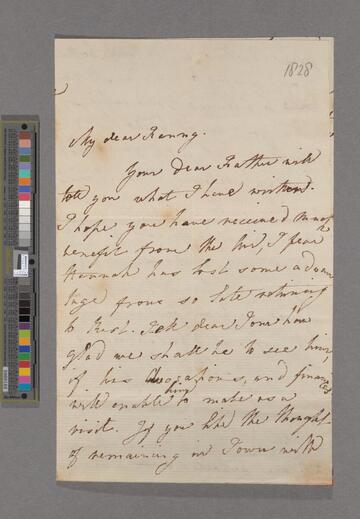 1828
My dear Fanny.
Your dear Father will
tell you what I have written.
I hope you have received much
benefit from the Air, I fear
Hannah has lost some advan
tage from so late returning
to Rest. Ask dear Tom how
glad we shall be to see him
if his avocations, and finances
will enable him to make us a
visit. If you like the thought
of remaining in Town with